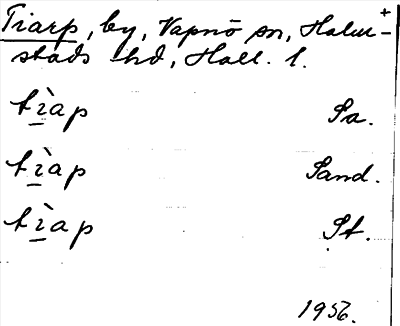 Tiarp, by, Vapnö sn, Halm-+
stads hd, Hall. l.
tìap Sa.
tìap Sand.
tìap St.
1956.